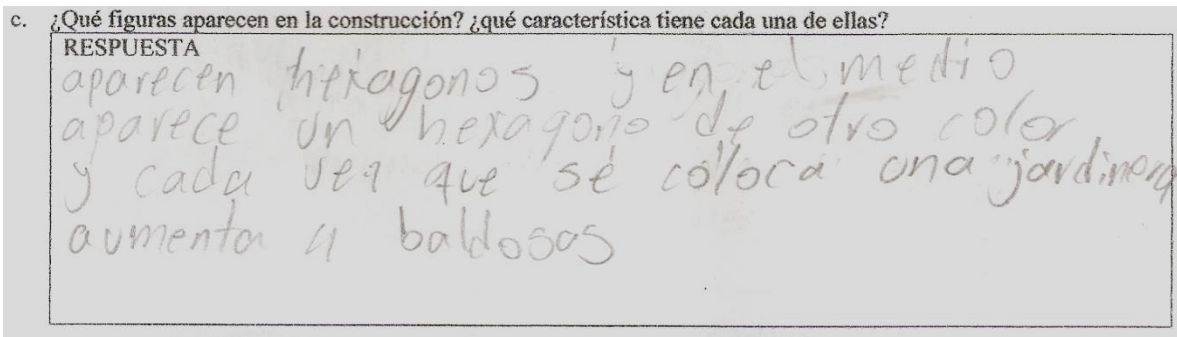 c. ¿Qué figuras aparecen en la construcción? ¿qué característica tiene cada una de ellas?
RESPUESTA
aparecen hexagonos y en el medio
aparece un hexagono de otro color
y cada vez que se coloca una jardinera
aumenta 4 baldosas